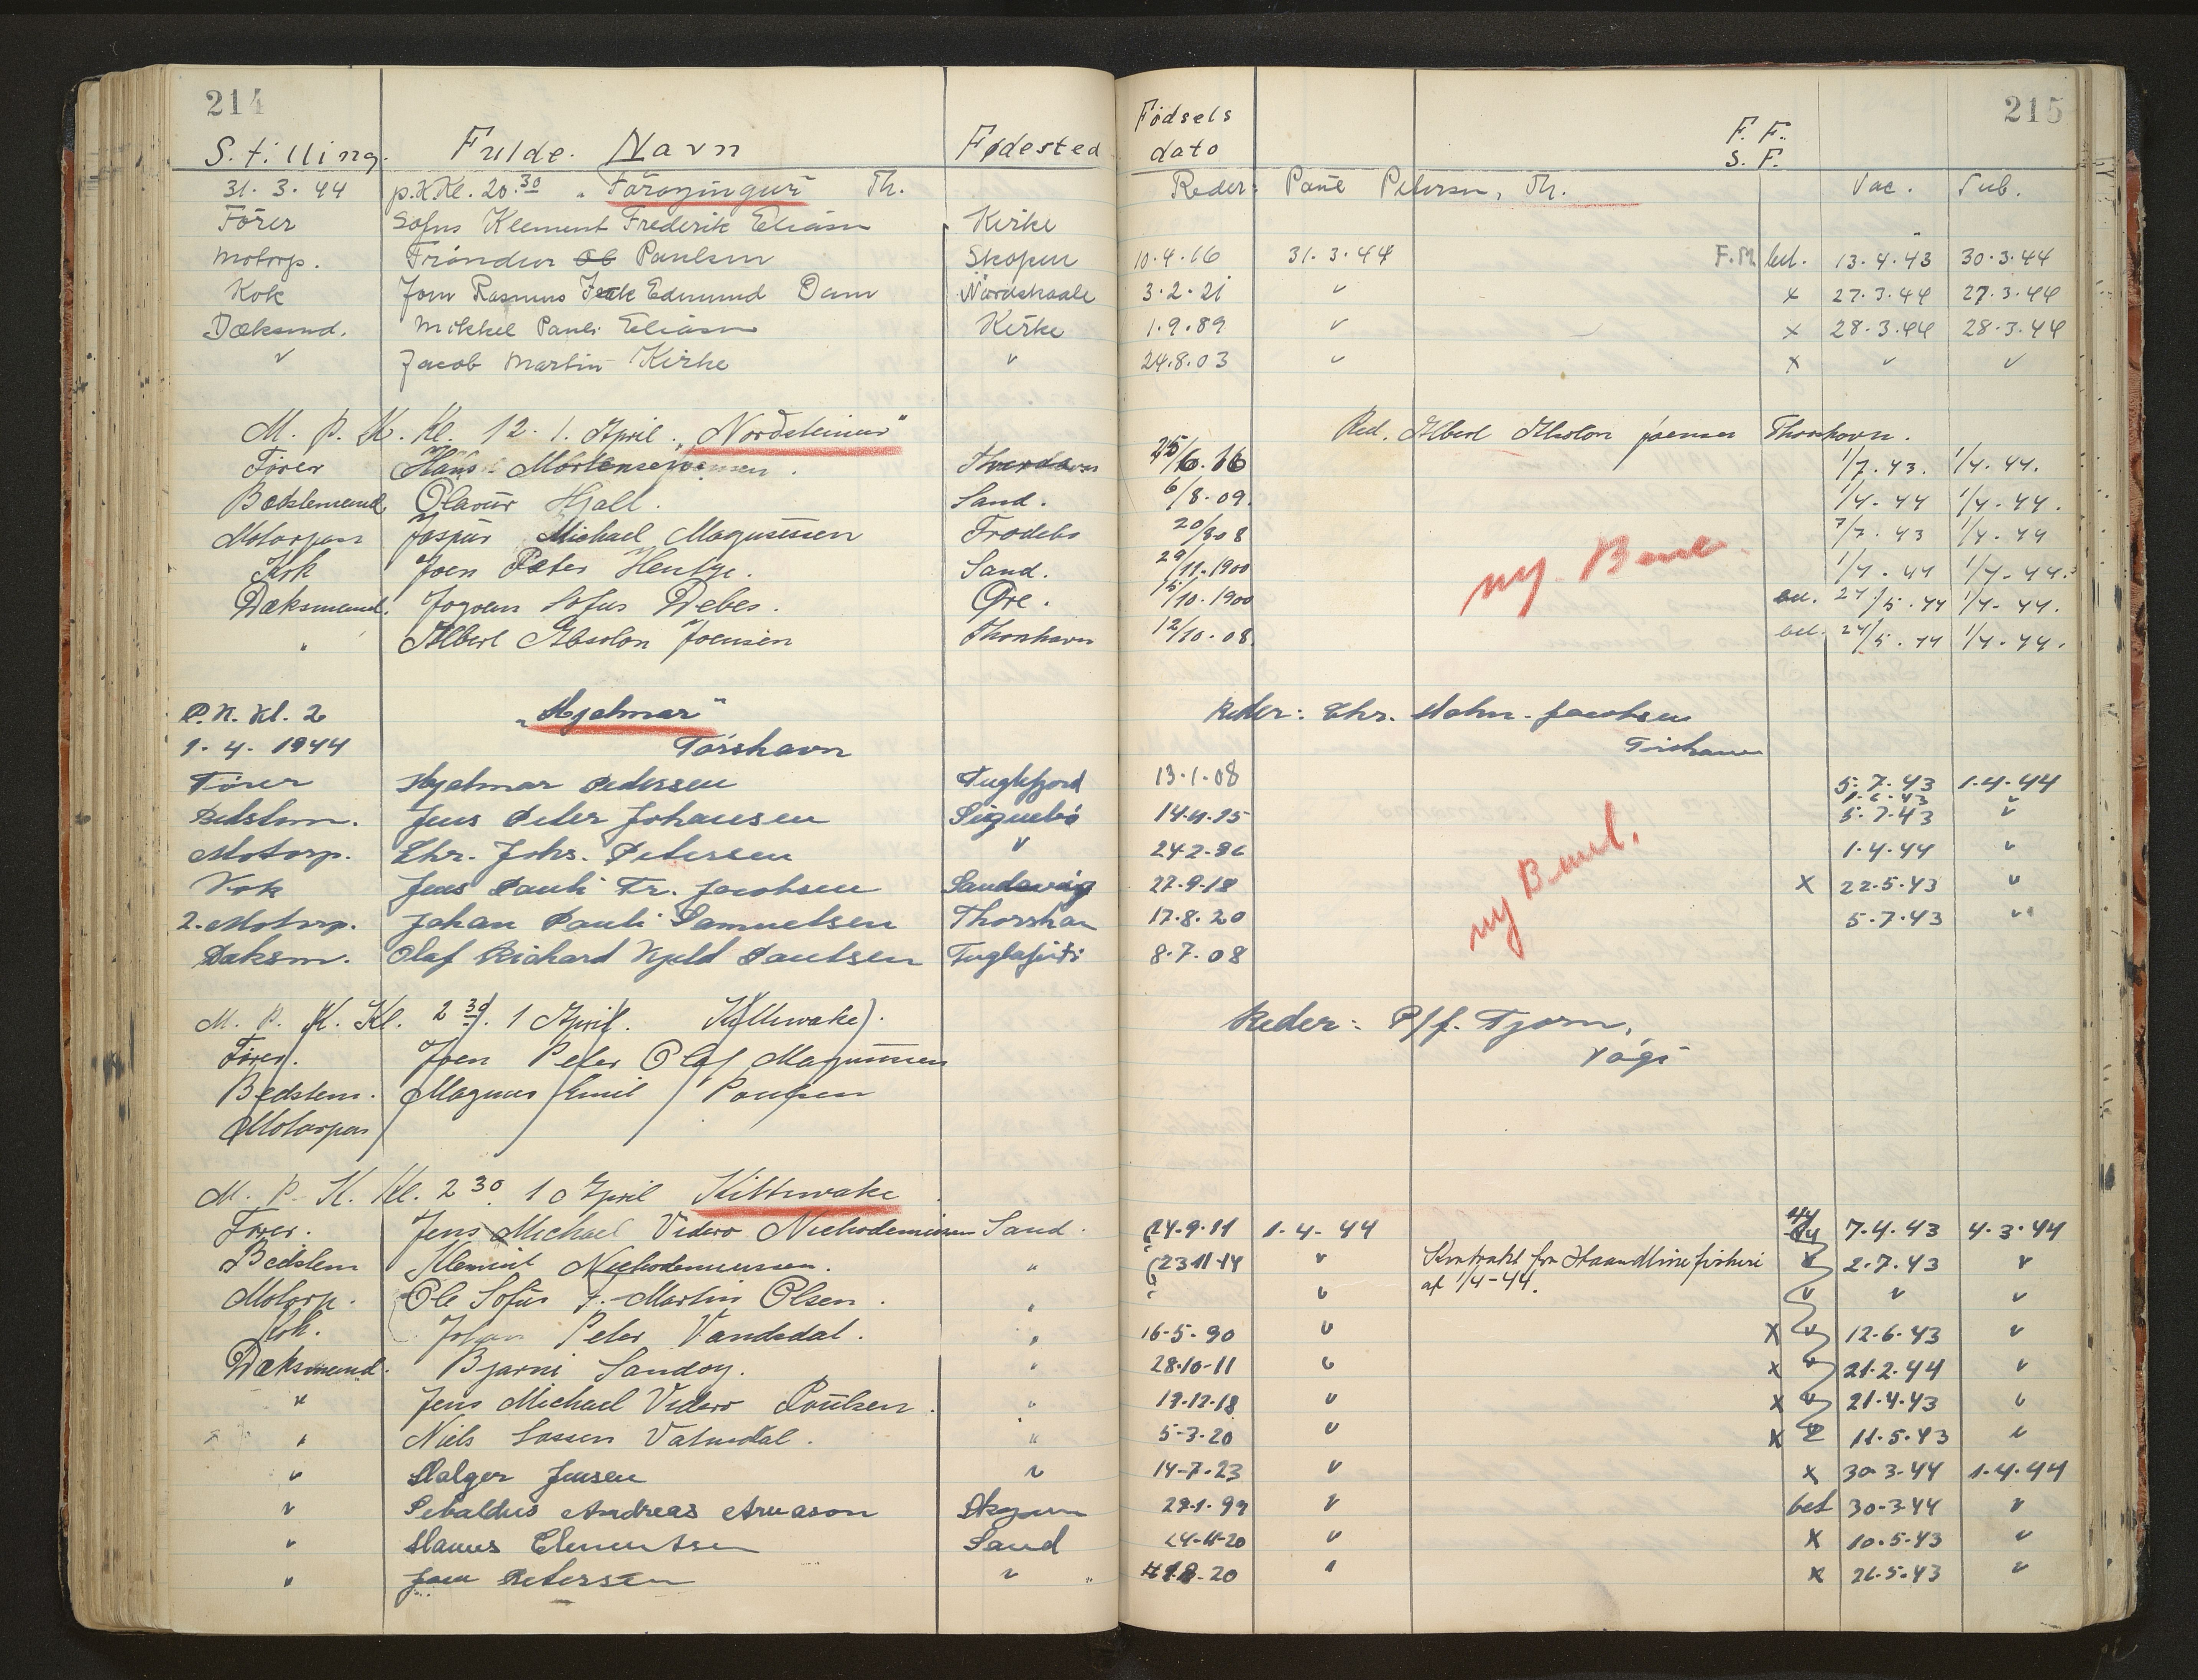 214
215
S.tilling. Fulde. Navn Fødested Fødsels dato F. F. S. F.
31. 3. 44 p.K Kl. 20.30 „Føroyingur" Th. Reder: Paul Petersen, Th. Vac. Tub.
Fører Sofus Klement Frederik Eliasen Kirke
Motorp. Tróndur Ob Paulsen Skopun 10.4.16 31.3.44 F.M. bet. 13.4.43 30.3.44
Kok Joen Rasmus Edmund Dam Nordskaale 3.2.21 " x 27.3.44 27.3.44
Dæksmd. Mikkel Pauli Eliasen Kirke 1.9.89 " x 28.3.44 28.3.44
" Jacob Martin Kirke " 24.8.03 " x " "
M. P. K. Kl. 12. 1. April. „Nordsteinur" Red. Albert Absolon Joensen Thorshavn.
Fører Hans Mortensen 25/6.16 1/7.43. 1/4.44.
Bedstemand Olavur Hjall. Sand. 6/8.09. 1/4.44 1/4.44.
Motorpas Jaspur Michael Magnussen Frodebø 20/808 7/7.43 1/4.44
Kok Joen Peter Hentze. Sand. 29/11.1900 1/4.44 1/4.44.
Dæksmand. Jogvan Sofus Debes. Øre. /10.1900 bet. 24/5.44 1/4.44.
" Albert Absolon Joensen Thorshavn 12/10.08. bet. 24/5.44 1/4.44.
ny. Bem.
P.K. Kl. 2 „Hjalmar" Reder: Chr. Holm-Jacobsen
1.4.1944 Tórshavn Tórshavn
Fører Hjalmar Pedersen Fuglefjord 13.1.08 5.7.43 1.4.44
Bedstem. Jens Peter Johansen Signabø 14.4.15 5.7.43 "
Motorp. Chr. Johs. Petersen " 24.2.86 1.4.44 "
Kok Jens Pauli Fr. Jacobsen Sandavág 27.9.18 x 22.5.43 "
2. Motorp. Johan Pauli Samuelsen Thorshavn 17.8.20 5.7.43 "
Dæksm. Olaf Richard Kjeld Paulsen Fuglafirði 8.7.08
ny Bem.
M. P. K. Kl. 2 30. 1 April. Kittiwake. Reder: P/f. Tjørn,
Fører. Joen Peter Olaf Magnussen Vági
Bedstem. Magnus Emil Poulsen
Motorpas
M. P. K. Kl. 2 30. 1 April Kittiwake
Fører. Jens Michael Viderø Nichodemussen Sand. 24.9.11 1.4-44 7.4.43 4.3.44
Bedstem Klemint Nichodemussen. " 23 11 14 " Kontrakt fra Haandlinefiskeri 2.7.43 "
Motorp. Ole Sofus J. Martin Olsen. " " af 1/4-44. " " "
Kok. Johan Peter Vandsdal. " 16-5-90 " x " 12.6.43 "
Dæksmand. Bjarni Sandoy. " 28.10-11 " x " 21.2.44 "
" Jens Michael Viderø Poulsen. " 19.12.18 " x " 21.4.43 "
" Niels Sassen Vatnsdal. " 5-3-20 " x 11.5.43 "
" Halger Jensen " 14-7-23 " x 30-3-44 1.4.44
" Sebaldus Andreas Arnason Skopun 29.1.99 " bet 30-3-44 "
" Hanus Clementsen Sand 24-11-20 " x 10.5-43 "
" Joen Petersen " 8-20 " x 26.5.43 "